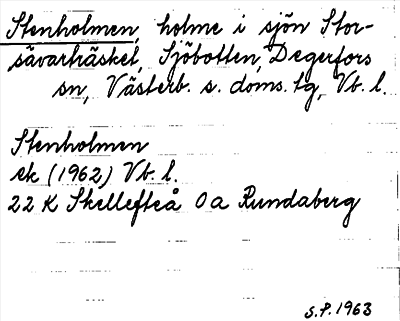 Stenholmen, holme i sjön Stor-
sävarträsket, Sjöbotten, Degerfors
sn, Västerb. s. doms. tg, Vb. l.
Stenholmen
ek (1962) Vb. l.
22 K Skellefteå 0a Rundaberg
S.P. 1963